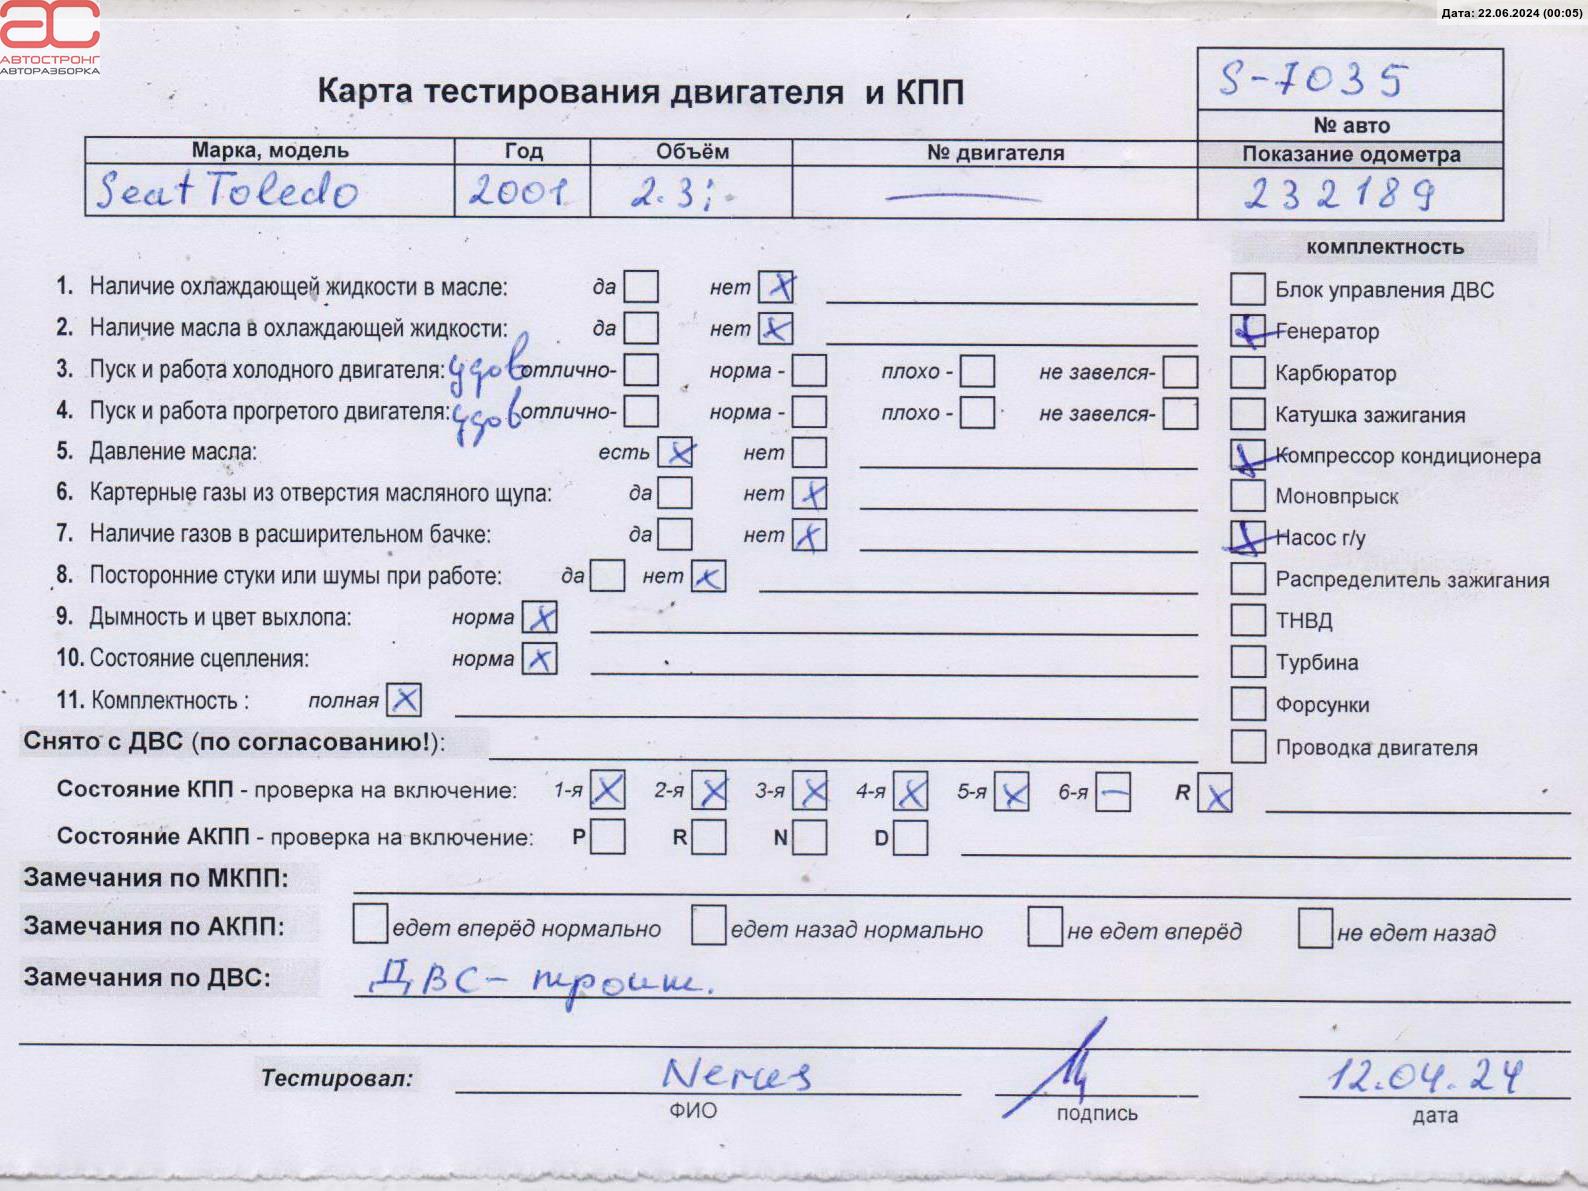 Дата: 22.06.2024 (00:05)
АС
АВТОСТРОНГ
АВТОРАЗБОРКА
Карта тестирования двигателя и КПП
S-7035
№ авто
Марка, модель Год Объём № двигателя Показание одометра
Seat Toledo 2001 2.3i — 232189
комплектность
1. Наличие охлаждающей жидкости в масле: да нет X
Блок управления ДВС
2. Наличие масла в охлаждающей жидкости: да нет X
Генератор
3. Пуск и работа холодного двигателя: удов отлично- норма - плохо - не завелся-
Карбюратор
4. Пуск и работа прогретого двигателя: удов отлично- норма - плохо - не завелся-
Катушка зажигания
5. Давление масла: есть X нет
Компрессор кондиционера
6. Картерные газы из отверстия масляного щупа: да нет X
Моновпрыск
7. Наличие газов в расширительном бачке: да нет X
Насос г/у
8. Посторонние стуки или шумы при работе: да нет X
Распределитель зажигания
9. Дымность и цвет выхлопа: норма X
ТНВД
10. Состояние сцепления: норма X
Турбина
11. Комплектность : полная X
Форсунки
Снято с ДВС (по согласованию!):
Проводка двигателя
Состояние КПП - проверка на включение: 1-я X 2-я X 3-я X 4-я X 5-я X 6-я — R X
Состояние АКПП - проверка на включение: P R N D
Замечания по МКПП:
Замечания по АКПП: едет вперёд нормально едет назад нормально не едет вперёд не едет назад
Замечания по ДВС: ДВС - троит.
Тестировал: 12.04.24
ФИО подпись дата